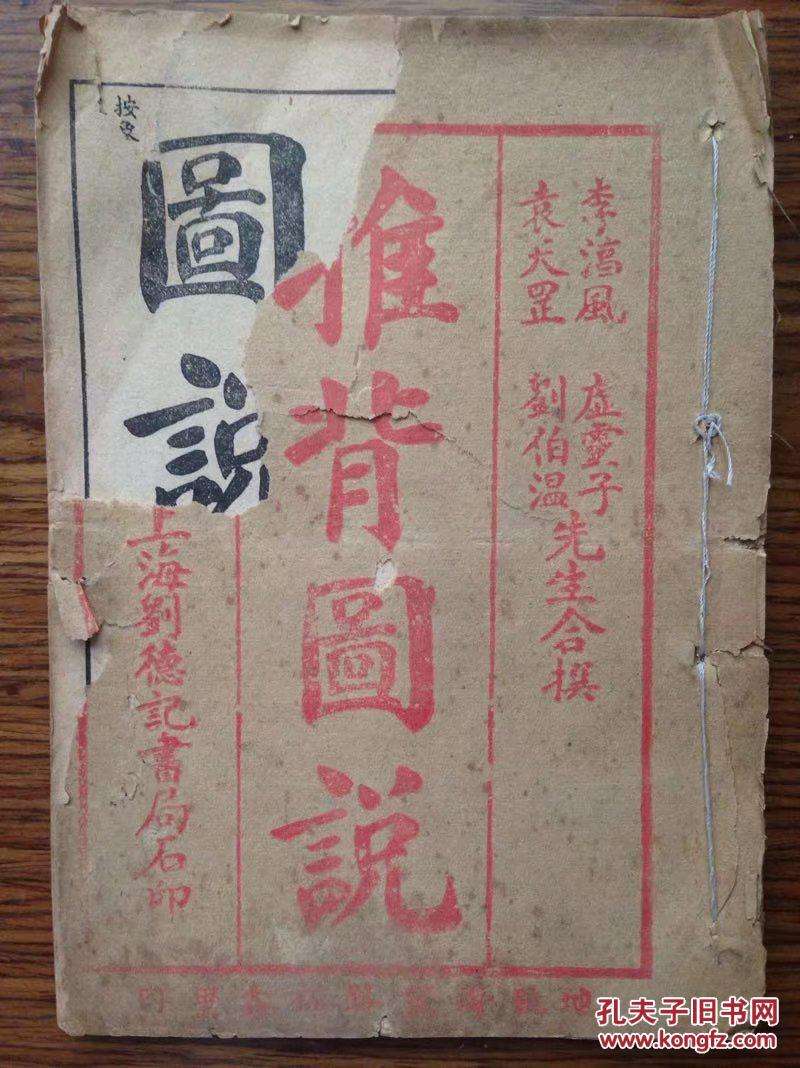 李淳風
袁天罡
虛靈子
劉伯温
先生合撰
推背圖説
上海劉德記書局石印
圖説
按
孔夫子旧书网
www.kongfz.com